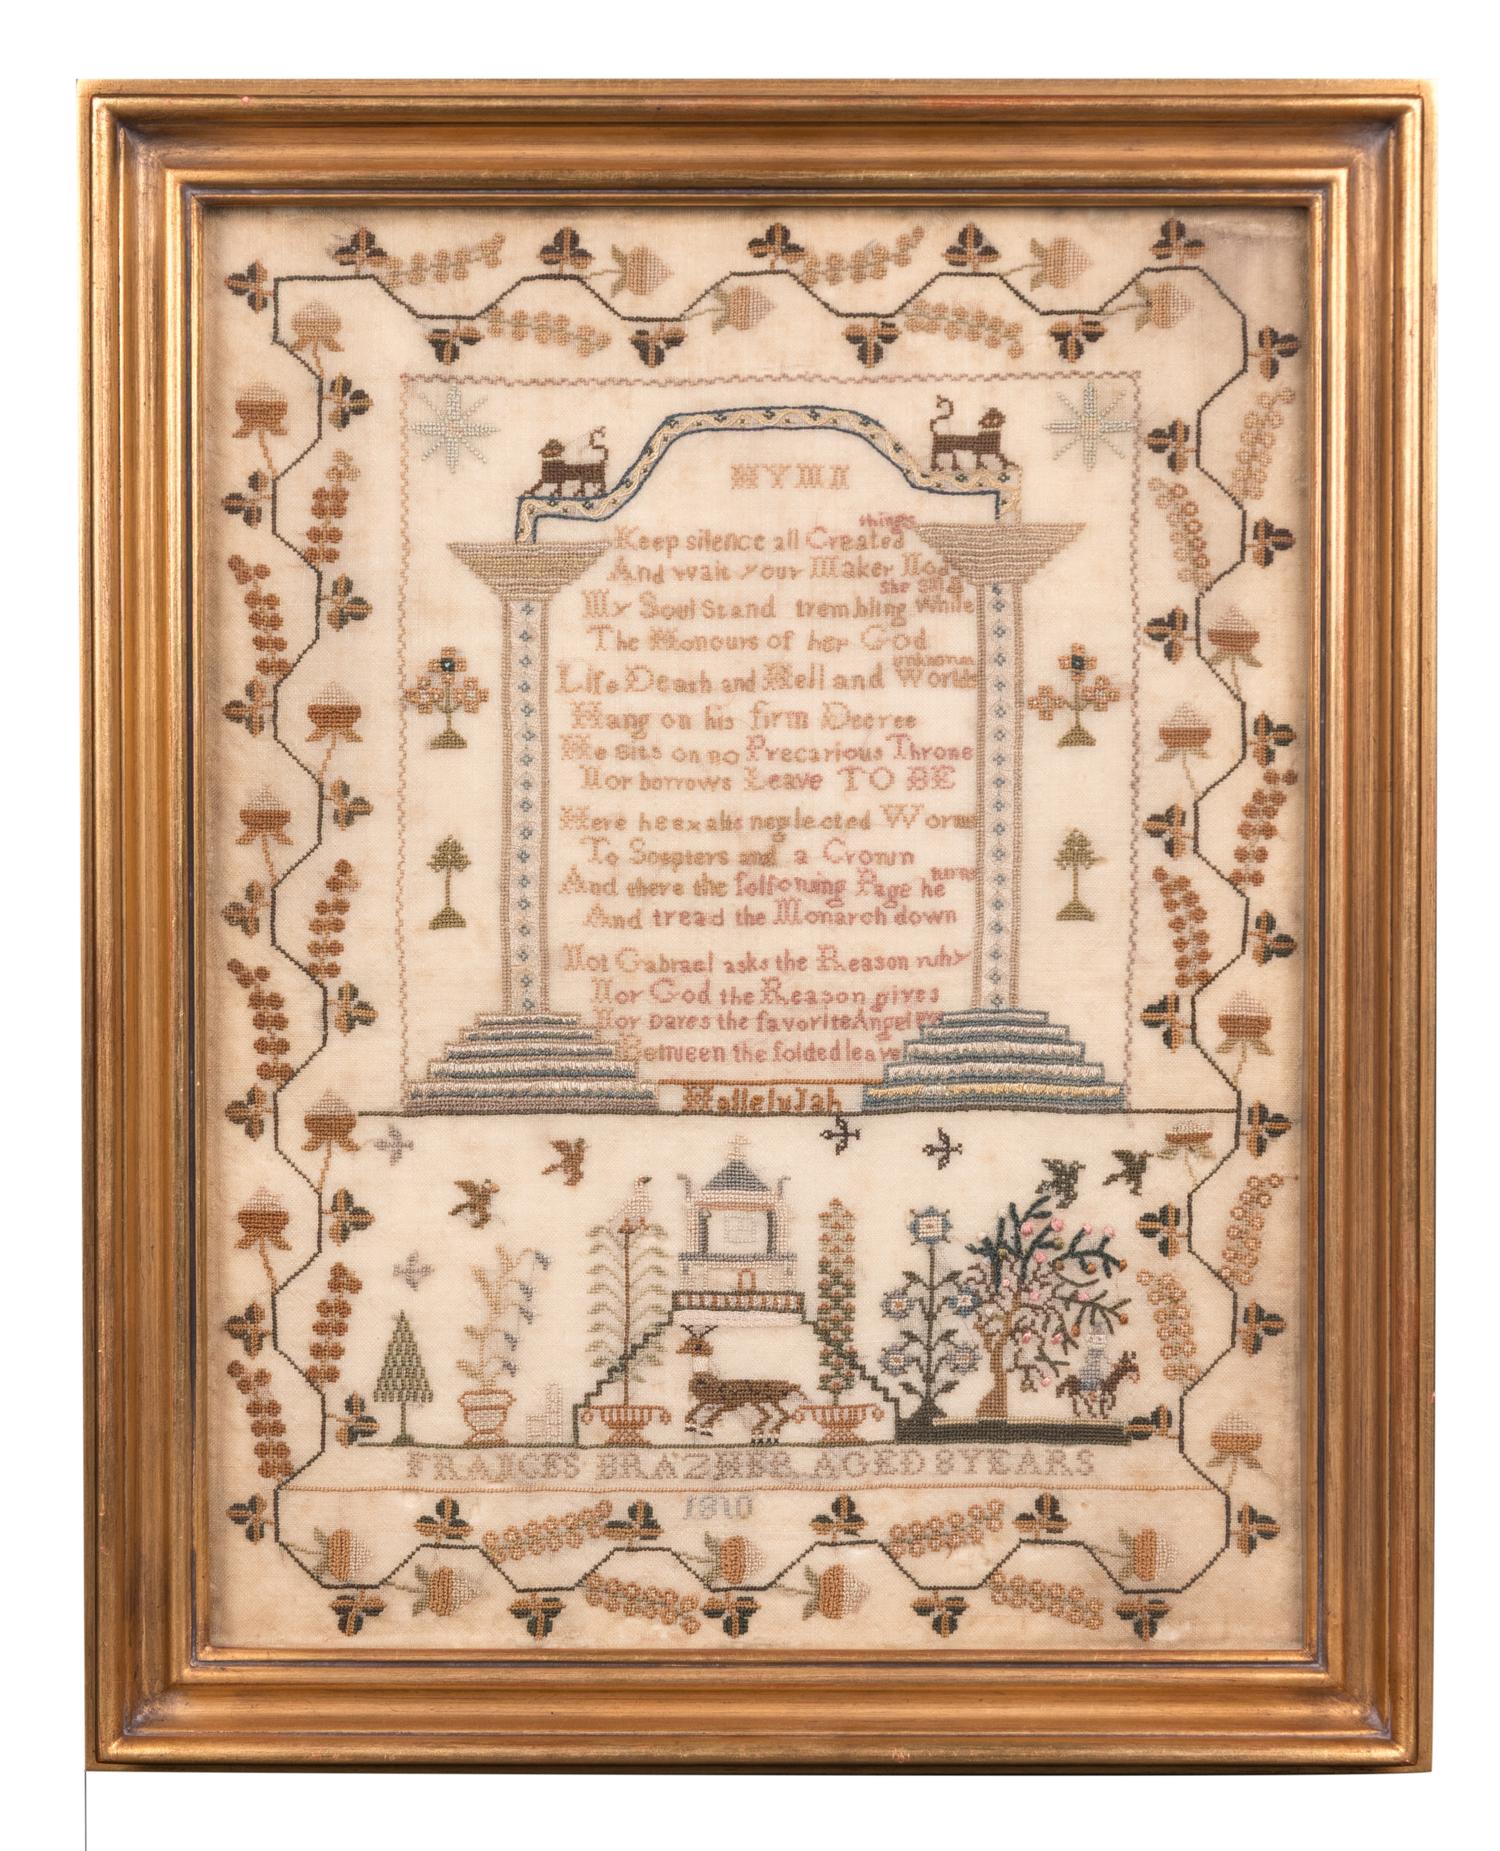 HYMN
Keep silence all Created things
And wait your Maker Nod
My Soul Stand trembling While She
The Honours of her God
Life Death and Hell and Worlds unknown
Hang on his firm Decree
He sits on no Precarious Throne
Nor borrows Leave TO BE
Here he exalts neglected Worms
To Scepters and a Crown
And there the folfoning Page he turns
And tread the Monarch down
Not Gabrael asks the Reason why
Nor God the Reason gives
Nor Dares the favorite Angel
Between the folded leave
HalleluJah
FRANCES BRAZHER AGED 8 YEARS
1810